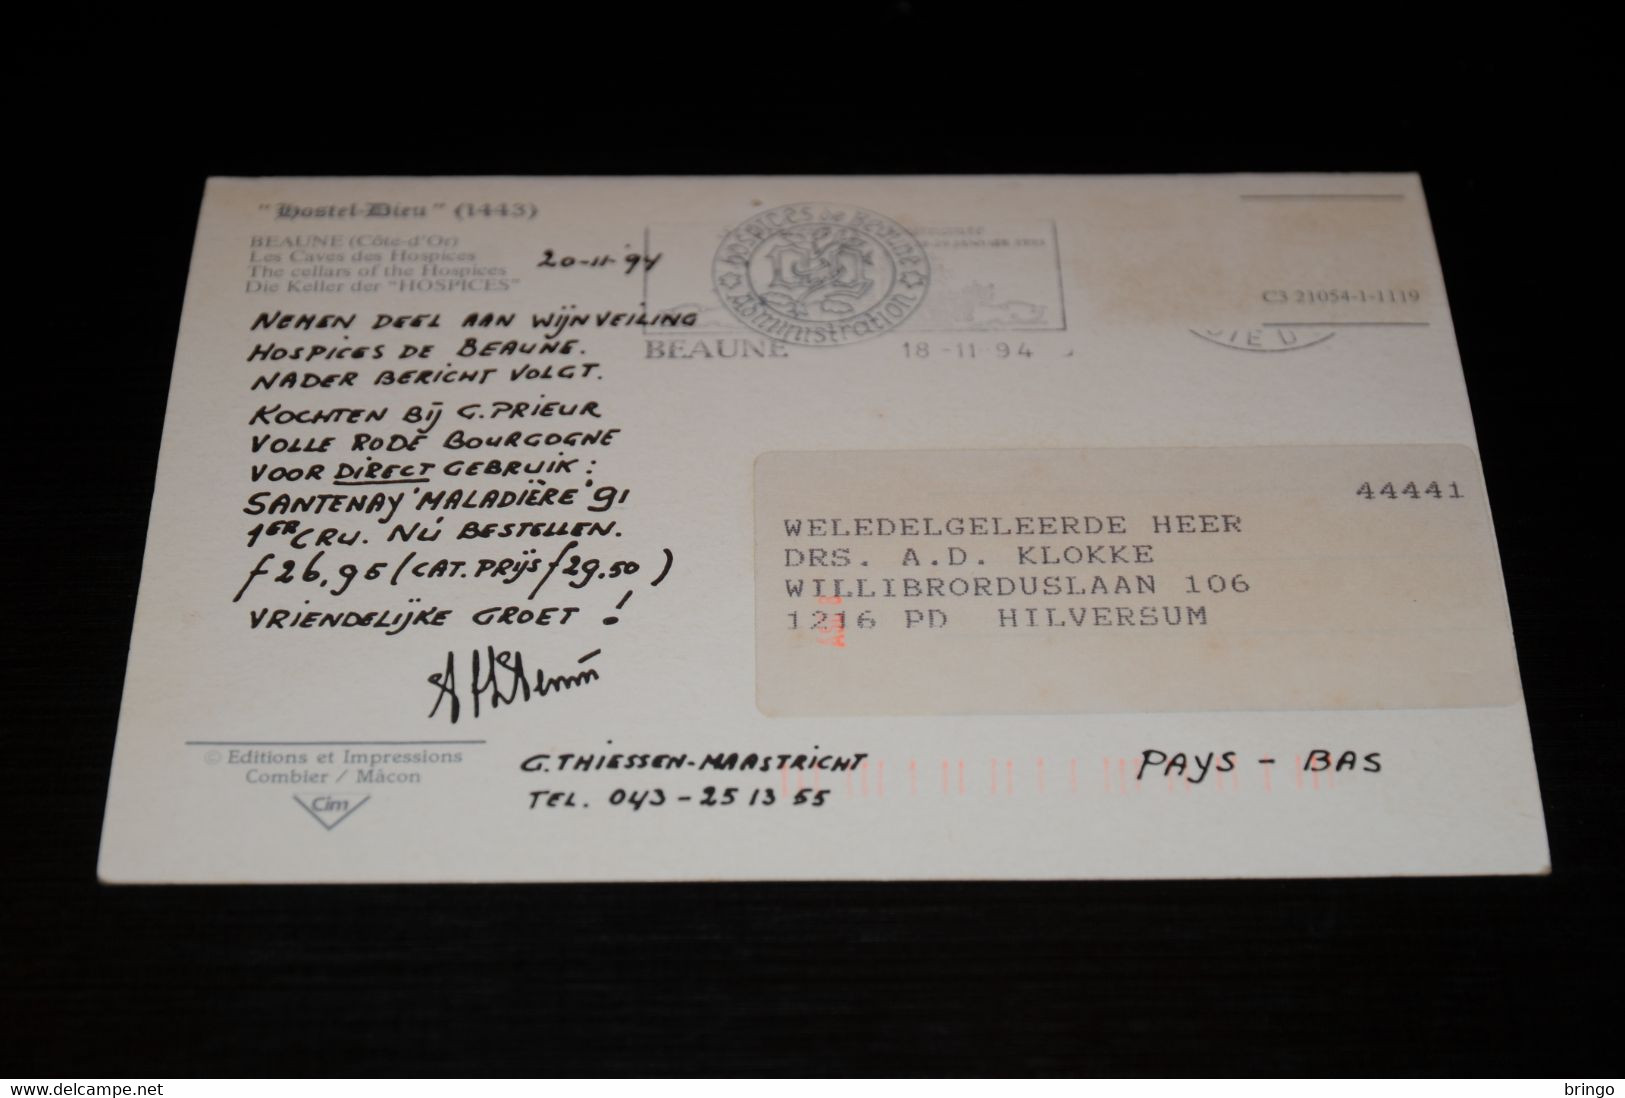 "Hostel-Dieu" (1443)
BEAUNE (Côte-d'Or)
Les Caves des Hospices
The cellars of the Hospices
Die Keller der "HOSPICES"
20-11-94
HOSPICES de BEAUNE
ADMINISTRATION
BEAUNE
18-11-94
C3 21054-1-1119
NEMEN DEEL AAN WIJNVEILING
HOSPICES DE BEAUNE.
NADER BERICHT VOLGT.
KOCHTEN BIJ G. PRIEUR
VOLLE RODE BOURGOGNE
VOOR DIRECT GEBRUIK:
SANTENAY 'MALADIÈRE' 91
1ER CRU. NÚ BESTELLEN.
f 26,95 (CAT. PRIJS f 29.50)
VRIENDELIJKE GROET !
44441
WELEDELGELEERDE HEER
DRS. A.D. KLOKKE
WILLIBRORDUSLAAN 106
1216 PD HILVERSUM
© Editions et Impressions
Combier / Mâcon
Cim
G. THIESSEN-MAASTRICHT
TEL. 043-251355
PAYS - BAS
bringo